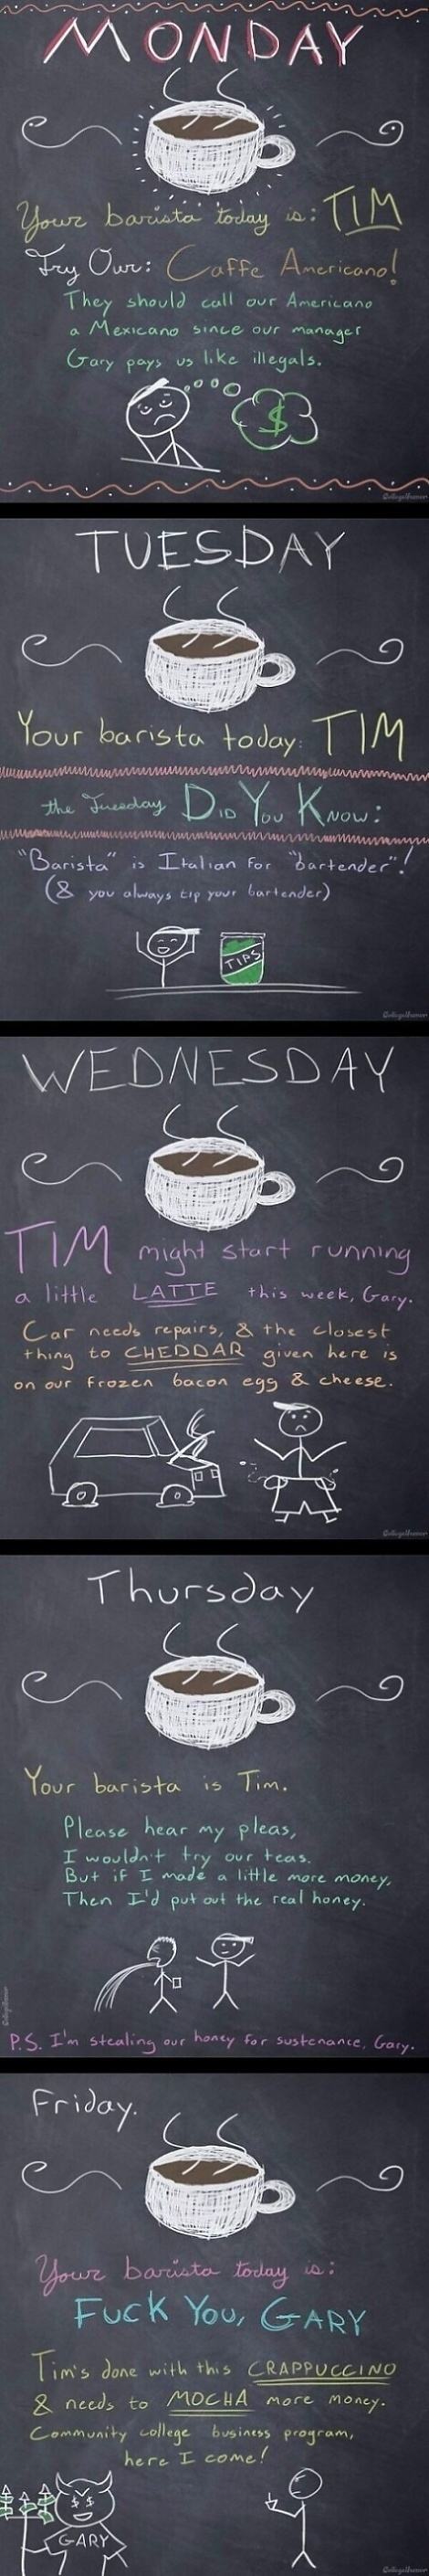 MONDAY
Your barista today is: TIM
Try Our: Caffe Americano!
They should call our Americano
a Mexicano since our manager
Gary pays us like illegals.
$
CollegeHumor
TUESDAY
Your barista today: TIM
the Tuesday DID YOU KNOW:
"Barista" is Italian for "bartender"!
(& you always tip your bartender)
TIPS
CollegeHumor
WEDNESDAY
TIM might start running
a little LATTE this week, Gary.
Car needs repairs, & the closest
thing to CHEDDAR given here is
on our frozen bacon egg & cheese.
CollegeHumor
Thursday
Your barista is Tim.
Please hear my pleas,
I wouldn't try our teas.
But if I made a little more money,
Then I'd put out the real honey.
CollegeHumor
P.S. I'm stealing our honey for sustenance, Gary.
Friday.
Your barista today is:
FUCK YOU, GARY
Tim's done with this CRAPPUCCINO
& needs to MOCHA more money.
Community college business program,
here I come!
$ $
GARY
CollegeHumor